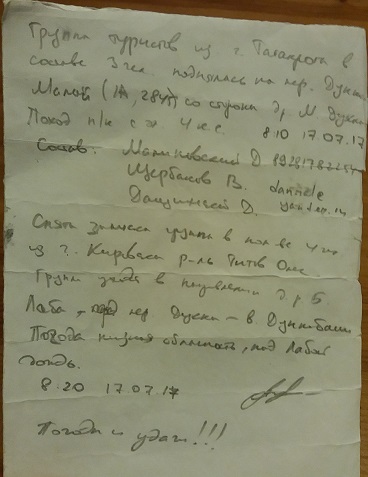 Группа туристов из г. Таганрога в
составе 3 чел. поднялась на пер. Дукка
Малый (1А, 2845) со стороны др М Дукка
Поход п/к с эл 4 к.с. 8 10 17.07.17
Состав: Малиновский Д
Щербаков В.
Д.
Снята записка группы в кол-ве 4 чел
из г. р-ль Титов
Группа уходит в направлении д.р Б
Лаба - пер. Дукка - в.
Погода низкая облачность, над Лабой
дождь.
8:20 17.07.17
Погоды и удачи!!!